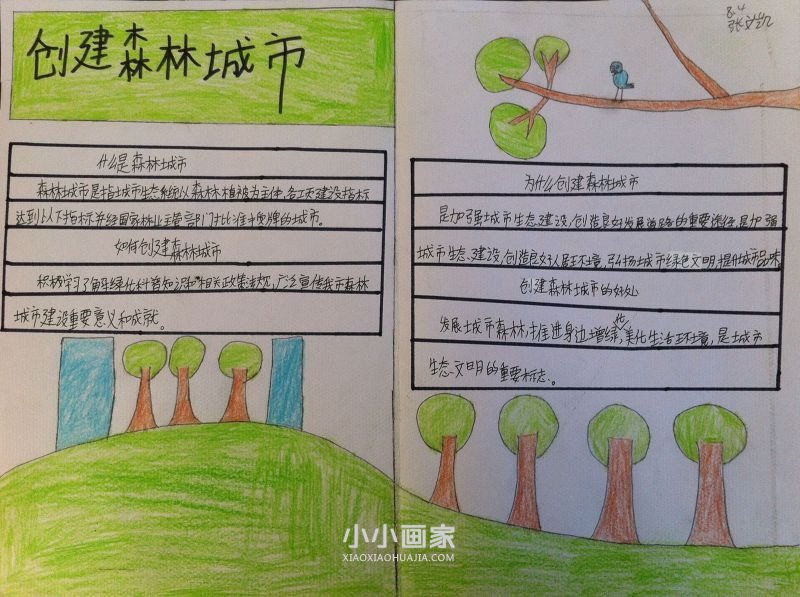 创建森林城市
什么是森林城市
森林城市是指城市生态系统以森林植被为主体,各工页建设指标
达到以下指标并经国家林业主管部门批准授牌的城市。
如何创建森林城市
积极学习了解绿化科普知识和相关政策法规,广泛宣传我市森林
城市建设重要意义和成就。
8.4
为什么创建森林城市
是加强城市生态建设,创造良好发展道路的重要途径,是加强
城市生态、建设,创造良好人居环境,弘扬城市绿色文明,提升城市品味
创建森林城市的好处
发展城市森林,推进身边增绿化,美化生活环境,是城市
生态文明的重要标志。
小小画家
XIAOXIAOHUAJIA.COM